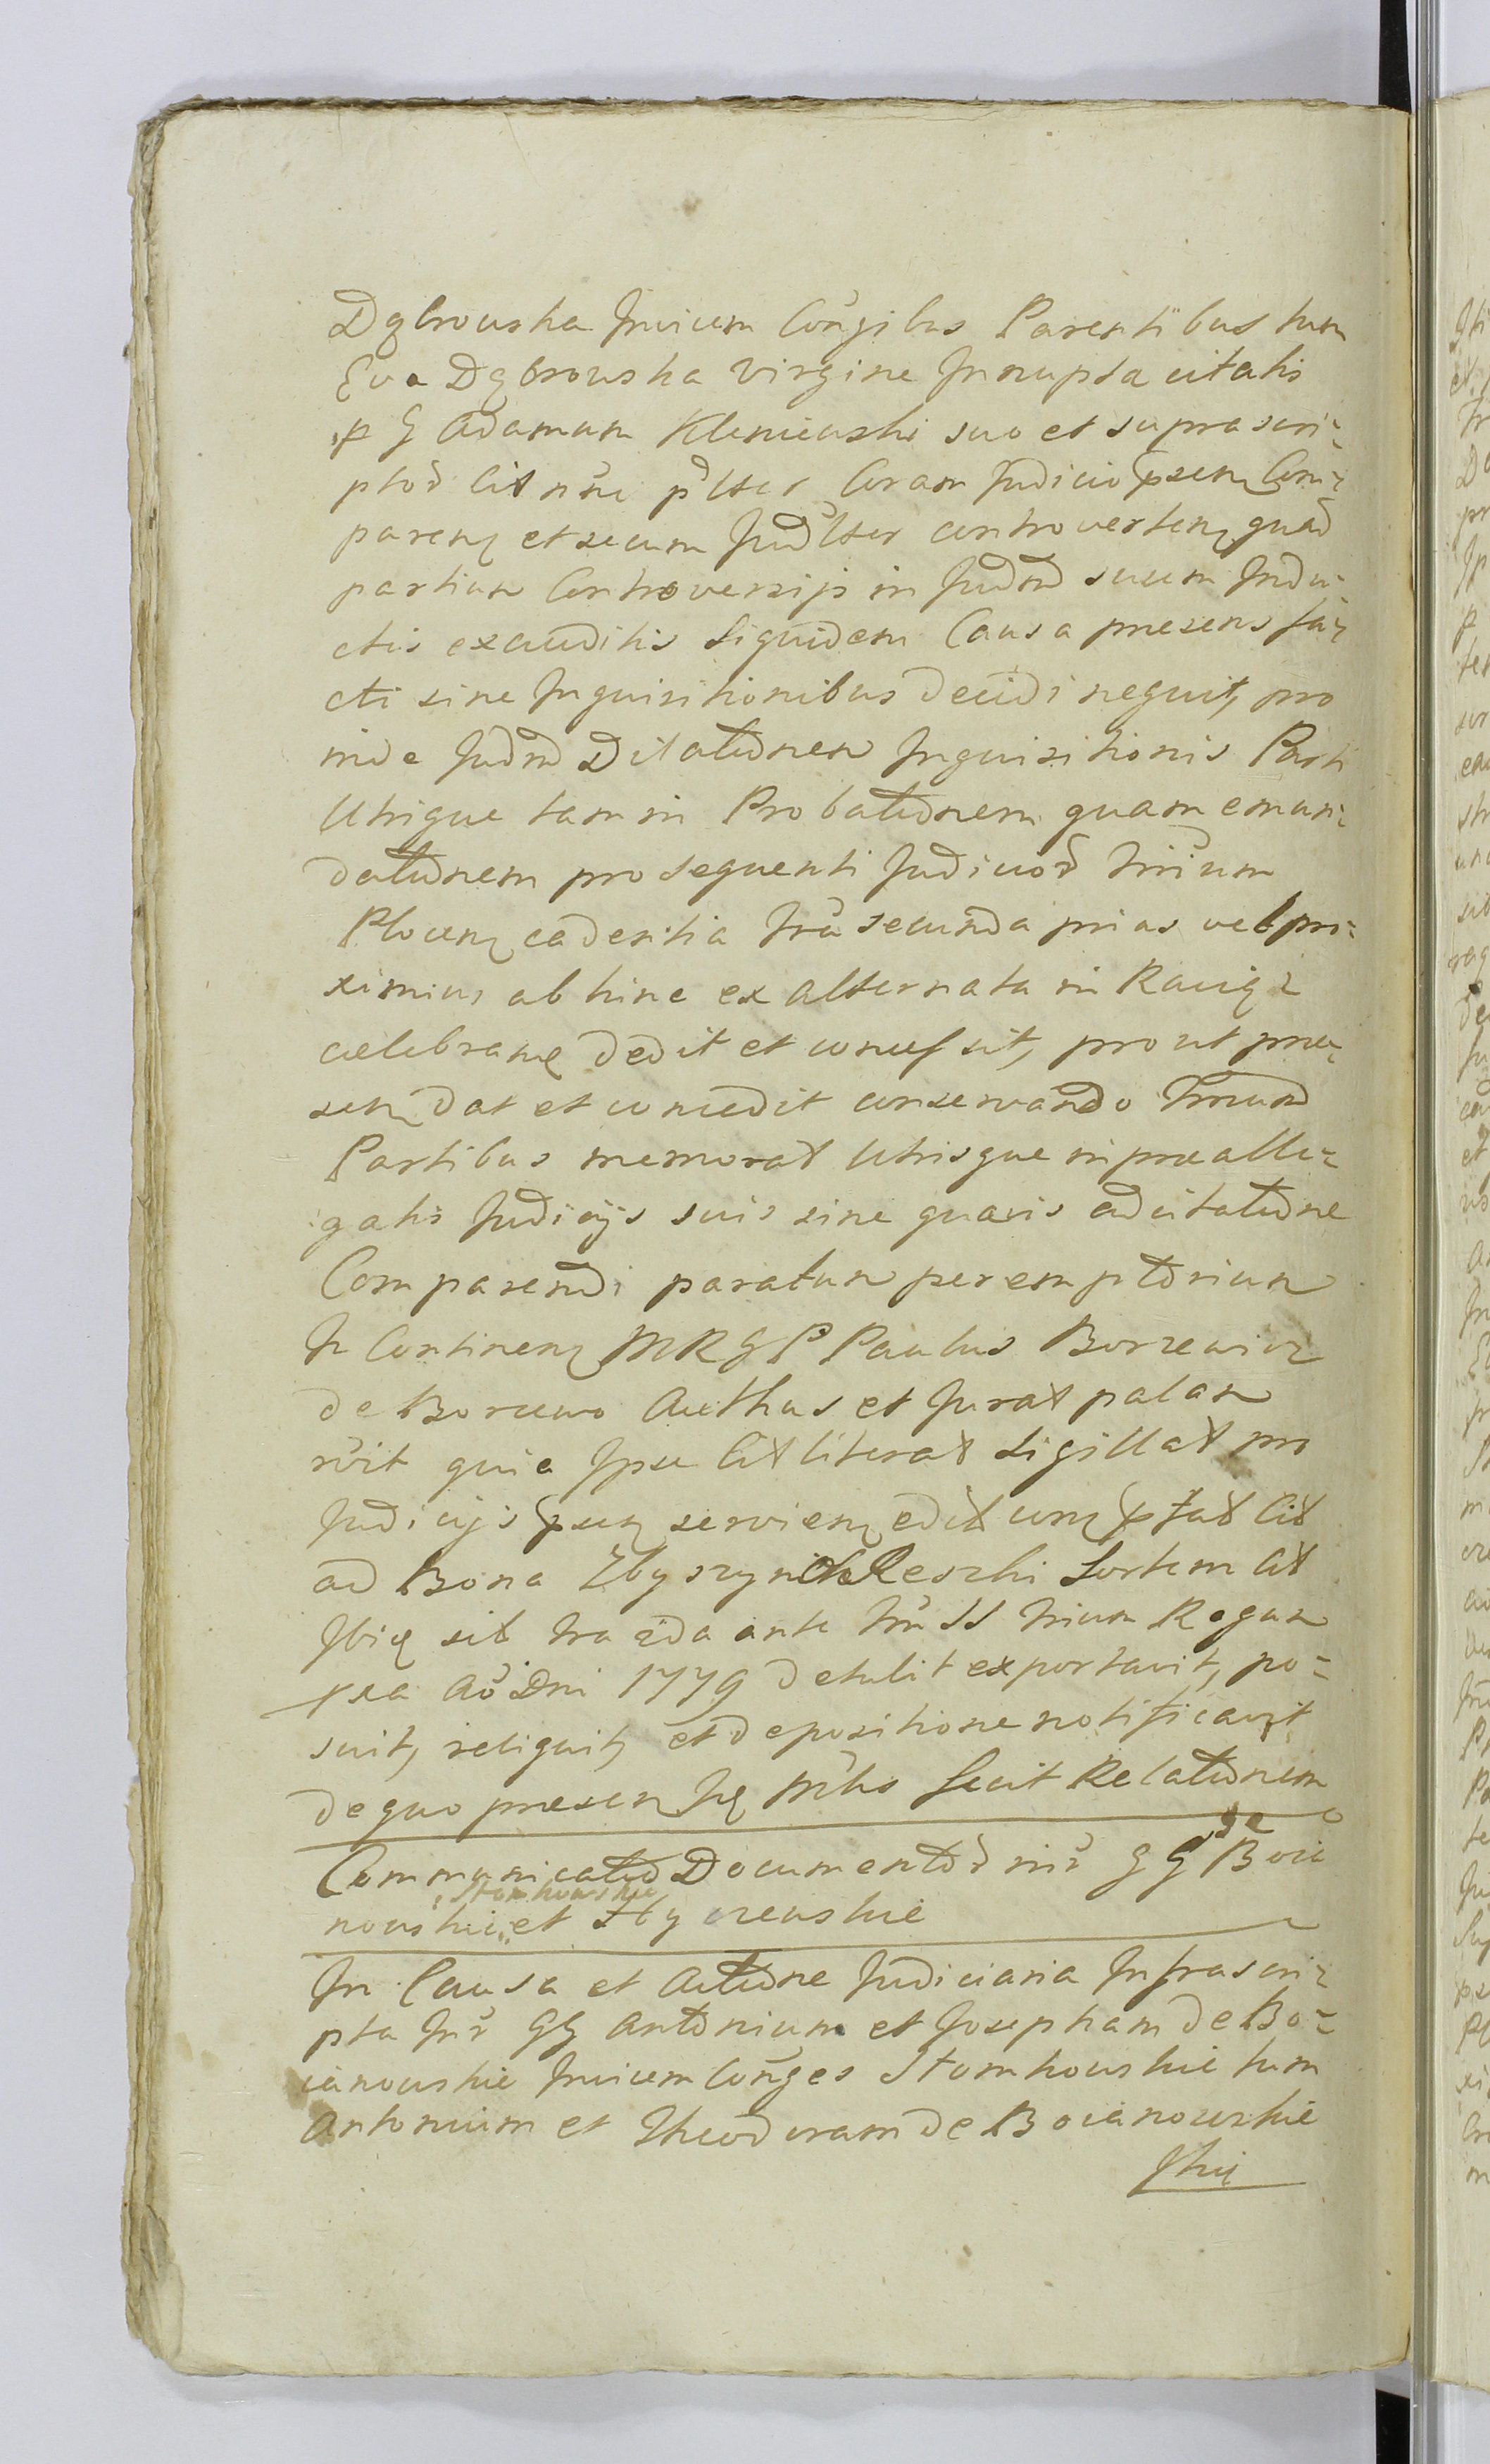 Dąbrowska Invicem Coñgibus Parentibus tum
Eva Dąbrowska Virgine Innupta citatis
p G Adamum Kleniewski suo et suprascri-
ptoꝝ Cit nñe pltter Coram Judicio psenꝫ Com-
parenꝫ et secum Judltter controvertenꝫ quaꝝ
partium Controversijs in Judm suum Indu-
ctis exauditis Siquidem Causa presens fa-
cti sine Inquisitionibus decidi nequit, pro
inde Judm Dilationem Inquisitionis Parti
Utrique tam in Probationem quam emun-
dationem pro sequenti Judicioꝝ Trium
Plocenꝫ cadentia fra secunda prius vel pro-
ximius ab hinc ex alternata in Raciąż
celebranꝫ dedit et concessit, prout prae-
senꝫ dat et concedit conservando Trnum
Partibus memorat Utrisque in praealle-
gatis Judicijs suis sine quavis adcitatione
Comparendi paratum peremptorium
In Continenꝫ MRGP Paulus Borzewicz
de Borzewo Authus et Jurat palam
rvit quia Ipse Cit literat Sigillat pro
Judicijs psenꝫ servienꝫ edit conꝫ pstat Cit
ad Bona Zbyszyno Reszki Sortem Cit
Ibiꝫ sit fra 2da ante frũ SS Trium Regum
pxa Aõ Dni 1779 detulit exportavit, po-
suit, reliquit, et depositione notificavit
de quo presen Iꝫ Mtris fecit Relationem
Communicatio Documentoꝝ inr GG de Boia
nowskie, et Hycrewskie
Stomkowskie
In Causa et Actione Judiciaria Infrascri-
pta Inr GG Antonium et Josepham de Bo-
ianowskie Invicem Conges Stomkowskie tum
Antonium et Theodoram de Boianowskie